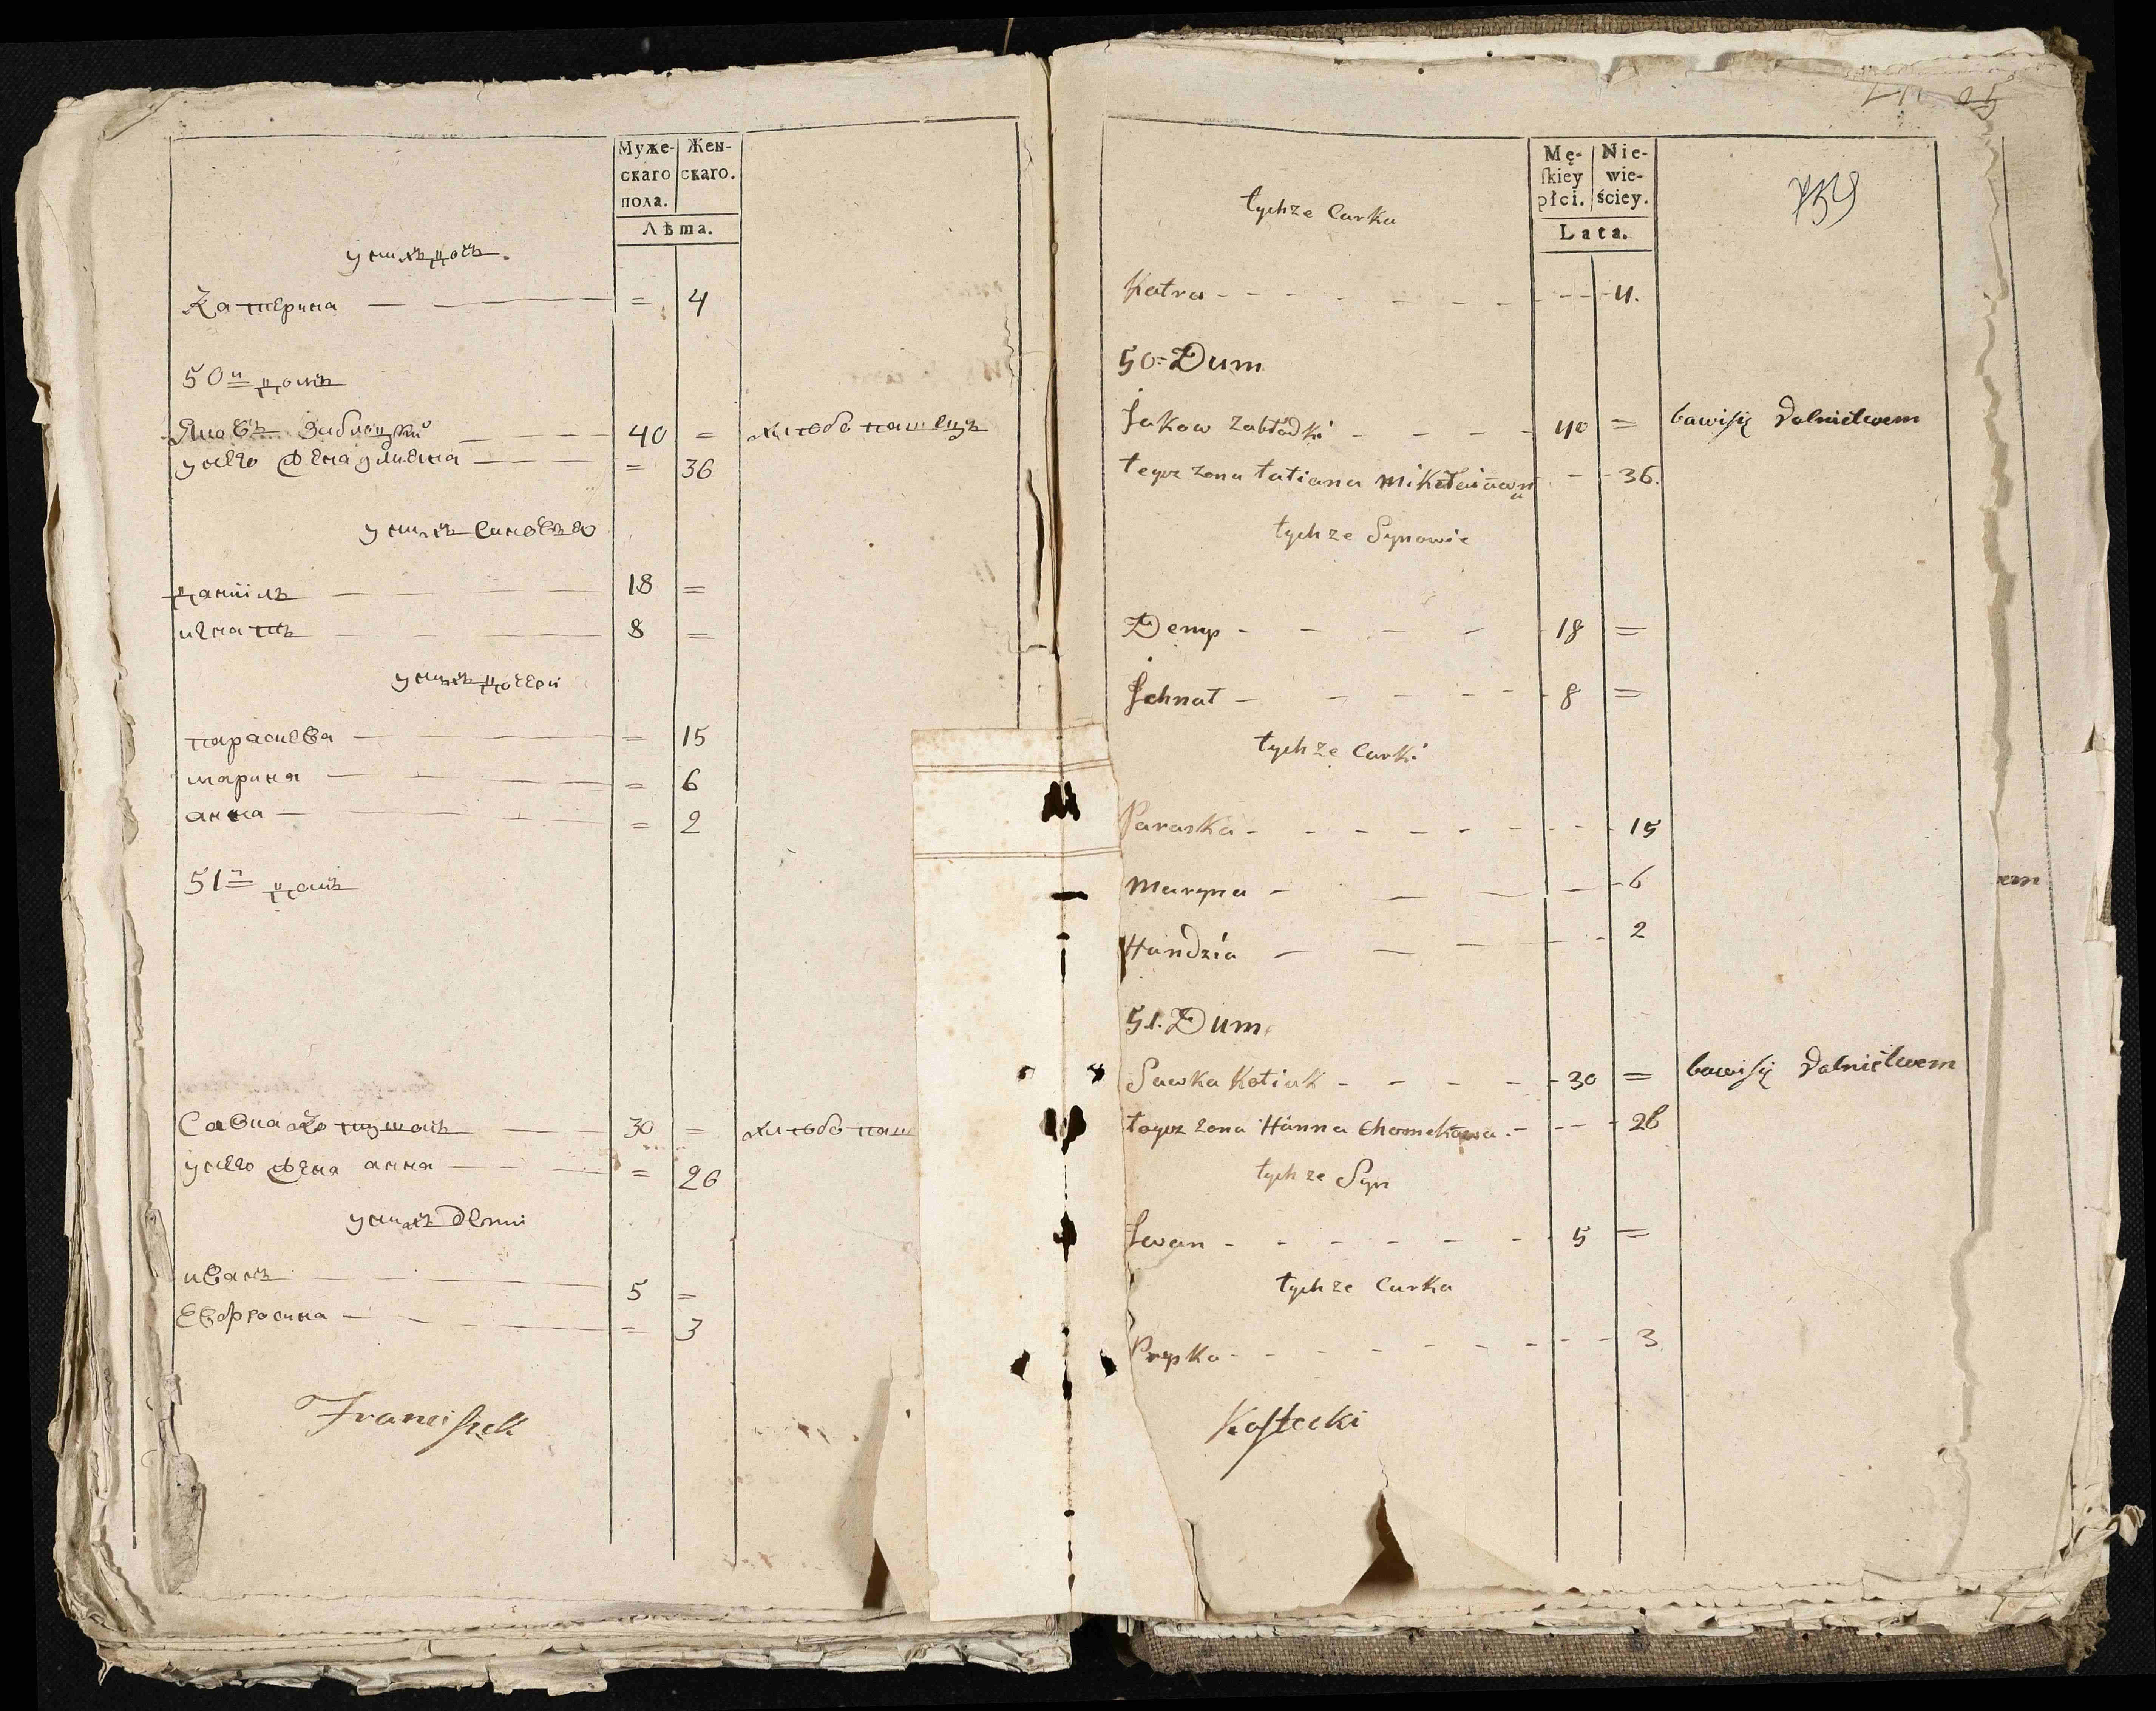 Муже-
скаго
пола.
Жен-
скаго.
Лѣта.
у нихъ дочь.
Катерина — — = 4
50й домъ
Яковъ Заблоцкий — — — 40 = хлебопашецъ
у него жена — — = 36
у нихъ синовъя
Даниилъ — — — 18 =
игнатъ — — — 8 =
у нихъ дочери
параскева — — — = 15
марина — — — = 6
анна — — — = 2
51й домъ
Савка — — 30 = хлебопаш
у него жена анна — — — = 26
у нихъ дети
иванъ — — — 5 =
Евфросина — — — = 3
Franciszek
50
759
Mę-
ſkiey
płci.
Nie-
wie-
ściey.
Lata.
tychże Curka
Katra - - - - 4.
50 = Dum
Jakow Zabłodzki - - - - 40 = bawiſię Rolnictwem
tegoż żona tatiana Mikołaiowna - - 36.
tychże Synowie
Demp - - - - 18 =
Jehnat - - - - 8 =
tychże Curki
Paraska - - - - 15
Maryna - — — - 6
Handzia — — — - 2
51. Dum.
Sawka Kotiuk - - - - 30 = bawiſię Rolnictwem
tegoż żona Hanna - - - 26
tychże Syn
Iwan - - - - 5 =
tychże Curka
Prypka - - - - 3
Koſtecki
em